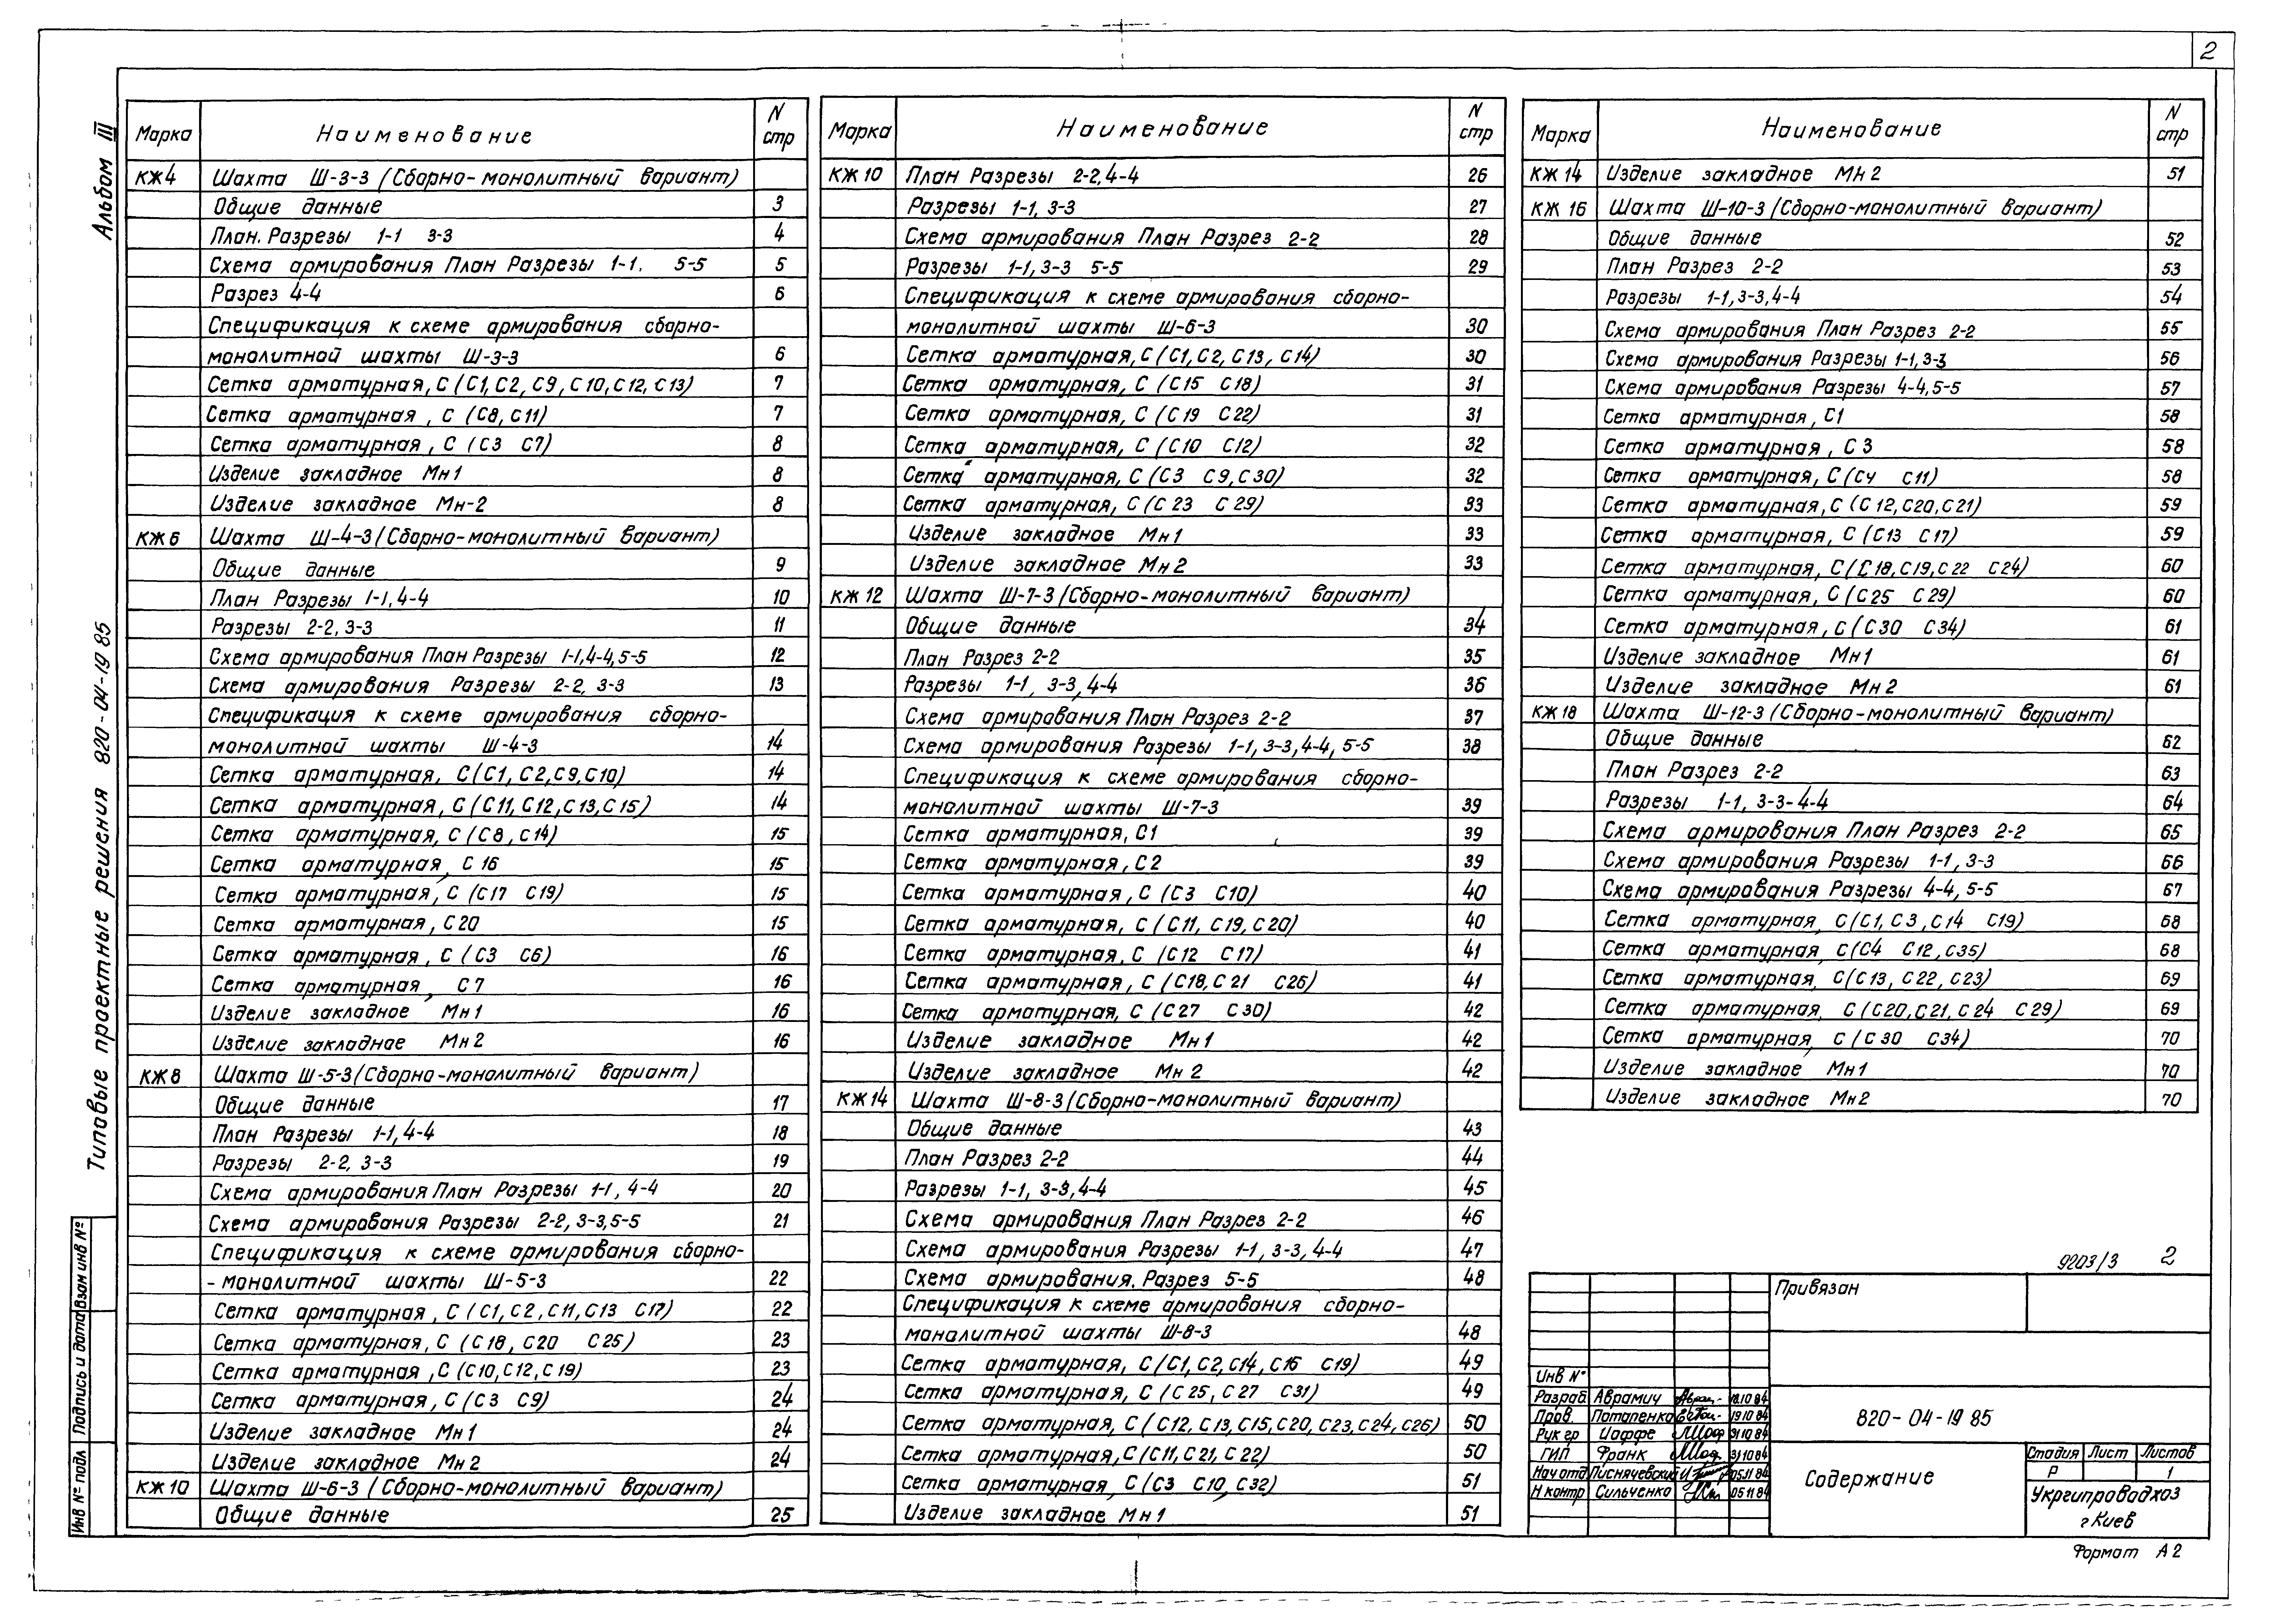 2
Альбом III
Типовые проектные решения 820-04-19 85
Марка Наименование N стр
КЖ4 Шахта Ш-3-3 (Сборно-монолитный вариант)
Общие данные 3
План. Разрезы 1-1 3-3 4
Схема армирования План Разрезы 1-1. 5-5 5
Разрез 4-4 6
Спецификация к схеме армирования сборно-
монолитной шахты Ш-3-3 6
Сетка арматурная, С (С1, С2, С9, С10, С12, С13) 7
Сетка арматурная, С (С8, С11) 7
Сетка арматурная, С (С3 С7) 8
Изделие закладное Мн1 8
Изделие закладное Мн-2 8
КЖ6 Шахта Ш-4-3 (Сборно-монолитный вариант)
Общие данные 9
План Разрезы 1-1, 4-4 10
Разрезы 2-2, 3-3 11
Схема армирования План Разрезы 1-1, 4-4, 5-5 12
Схема армирования Разрезы 2-2, 3-3 13
Спецификация к схеме армирования сборно-
монолитной шахты Ш-4-3 14
Сетка арматурная, С (С1, С2, С9, С10) 14
Сетка арматурная, С (С11, С12, С13, С15) 14
Сетка арматурная, С (С8, С14) 15
Сетка арматурная, С 16 15
Сетка арматурная, С (С17 С19) 15
Сетка арматурная, С20 15
Сетка арматурная, С (С3 С6) 16
Сетка арматурная, С7 16
Изделие закладное Мн1 16
Изделие закладное Мн2 16
КЖ8 Шахта Ш-5-3 (Сборно-монолитный вариант)
Общие данные 17
План Разрезы 1-1, 4-4 18
Разрезы 2-2, 3-3 19
Схема армирования План Разрезы 1-1, 4-4 20
Схема армирования Разрезы 2-2, 3-3, 5-5 21
Спецификация к схеме армирования сборно-
- монолитной шахты Ш-5-3 22
Сетка арматурная, С (С1, С2, С11, С13 С17) 22
Сетка арматурная, С (С18, С20 С25) 23
Сетка арматурная, С (С10, С12, С19) 23
Сетка арматурная, С (С3 С9) 24
Изделие закладное Мн1 24
Изделие закладное Мн2 24
КЖ10 Шахта Ш-6-3 (Сборно-монолитный вариант)
Общие данные 25
Марка Наименование N стр
КЖ 10 План Разрезы 2-2, 4-4 26
Разрезы 1-1, 3-3 27
Схема армирования План Разрез 2-2 28
Разрезы 1-1, 3-3 5-5 29
Спецификация к схеме армирования сборно-
монолитной шахты Ш-6-3 30
Сетка арматурная, С (С1, С2, С13, С14) 30
Сетка арматурная, С (С15 С18) 31
Сетка арматурная, С (С19 С22) 31
Сетка арматурная, С (С10 С12) 32
Сетка арматурная, С (С3 С9, С30) 32
Сетка арматурная, С (С 23 С 29) 33
Изделие закладное Мн1 33
Изделие закладное Мн2 33
КЖ 12 Шахта Ш-7-3 (Сборно-монолитный вариант)
Общие данные 34
План Разрез 2-2 35
Разрезы 1-1, 3-3, 4-4 36
Схема армирования План Разрез 2-2 37
Схема армирования Разрезы 1-1, 3-3, 4-4, 5-5 38
Спецификация к схеме армирования сборно-
монолитной шахты Ш-7-3 39
Сетка арматурная, С1 39
Сетка арматурная, С2 39
Сетка арматурная, С (С3 С10) 40
Сетка арматурная, С (С11, С19, С20) 40
Сетка арматурная, С (С12 С17) 41
Сетка арматурная, С (С18, С21 С26) 41
Сетка арматурная, С (С27 С30) 42
Изделие закладное Мн1 42
Изделие закладное Мн2 42
КЖ14 Шахта Ш-8-3 (Сборно-монолитный вариант)
Общие данные 43
План Разрез 2-2 44
Разрезы 1-1, 3-3, 4-4 45
Схема армирования План Разрез 2-2 46
Схема армирования Разрезы 1-1, 3-3, 4-4 47
Схема армирования. Разрез 5-5 48
Спецификация к схеме армирования сборно-
монолитной шахты Ш-8-3 48
Сетка арматурная, С (С1, С2, С14, С16 С19) 49
Сетка арматурная, С (С25, С27 С31) 49
Сетка арматурная, С (С12, С13, С15, С20, С23, С24, С26) 50
Сетка арматурная, С (С11, С21, С22) 50
Сетка арматурная, С (С3 С10, С32) 51
Изделие закладное Мн1 51
Марка Наименование N стр
КЖ 14 Изделие закладное Мн 2 51
КЖ 16 Шахта Ш-10-3 (Сборно-монолитный вариант)
Общие данные 52
План Разрез 2-2 53
Разрезы 1-1, 3-3, 4-4 54
Схема армирования План Разрез 2-2 55
Схема армирования Разрезы 1-1, 3-3 56
Схема армирования Разрезы 4-4, 5-5 57
Сетка арматурная, С1 58
Сетка арматурная, С3 58
Сетка арматурная, С (С4 С11) 58
Сетка арматурная, С (С12, С20, С21) 59
Сетка арматурная, С (С13 С17) 59
Сетка арматурная, С (С18, С19, С22 С24) 60
Сетка арматурная, С (С25 С29) 60
Сетка арматурная, С (С30 С34) 61
Изделие закладное Мн1 61
Изделие закладное Мн2 61
КЖ 18 Шахта Ш-12-3 (Сборно-монолитный вариант)
Общие данные 62
План Разрез 2-2 63
Разрезы 1-1, 3-3-4-4 64
Схема армирования План Разрез 2-2 65
Схема армирования Разрезы 1-1, 3-3 66
Схема армирования Разрезы 4-4, 5-5 67
Сетка арматурная, С (С1, С3, С14 С19) 68
Сетка арматурная, С (С4 С12, С35) 68
Сетка арматурная, С (С13, С22, С23) 69
Сетка арматурная, С (С20, С21, С24 С29) 69
Сетка арматурная, С (С30 С34) 70
Изделие закладное Мн1 70
Изделие закладное Мн2 70
9203/3 2
Привязан
Инв №
Разраб Аврамич 18.10 84
Пров. Потапенко 19 10 84
Рук гр Иоффе 31 10 84
ГИП Франк 31 10 84
Нач отд Лиснячевский 05.11 84
Н контр Сильченко 05 11 84
820-04-19 85
Содержание
Стадия Лист Листов
Р 1
Укргипроводхоз
г Киев
Формат А2
Инв № подл Подпись и дата Взам инв №